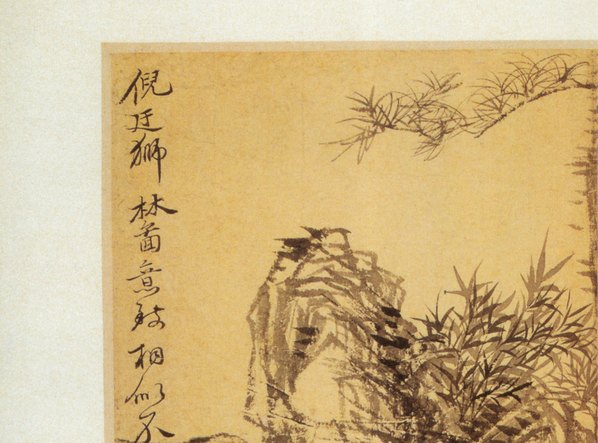 倪迂獅林啚意致相似不